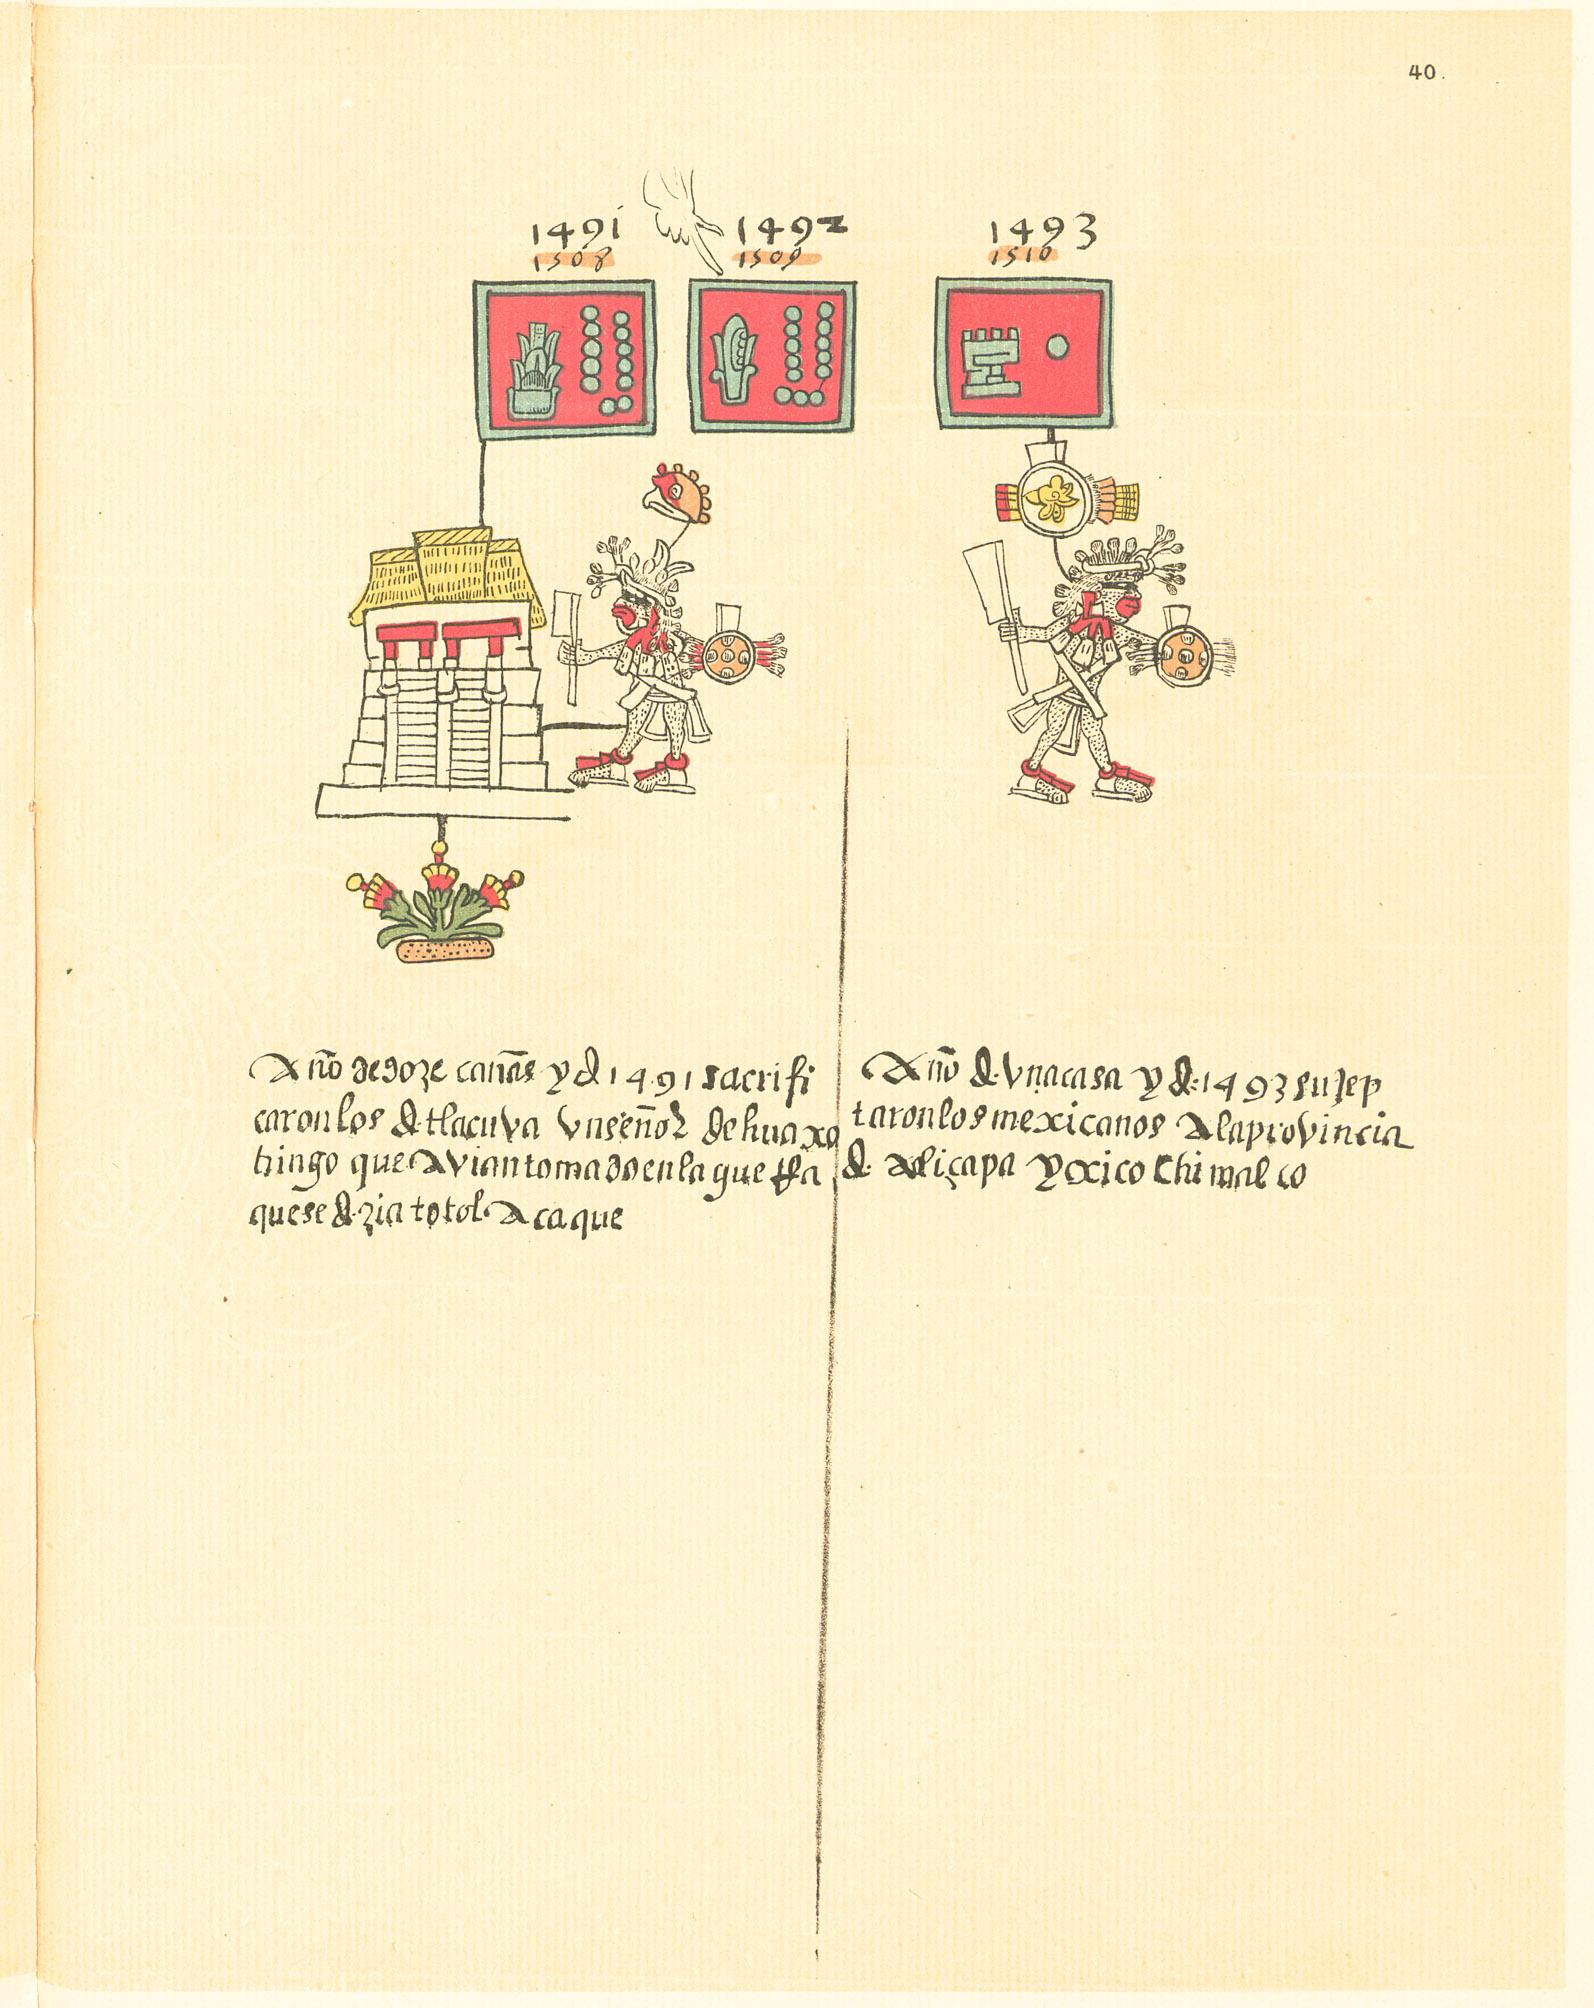 40.
1491 1492 1493
1508 1509 1510
Año de doze cañas y d 1491 sacrifi
caron los d tlacuva vn señor de huaxo
tzingo que avian tomado en la guerra
que se dezia totol Acaque
Año d vna casa y d 1493 sujep
taron los mexicanos Ala provincia
d Aliçapa y xico chimalco